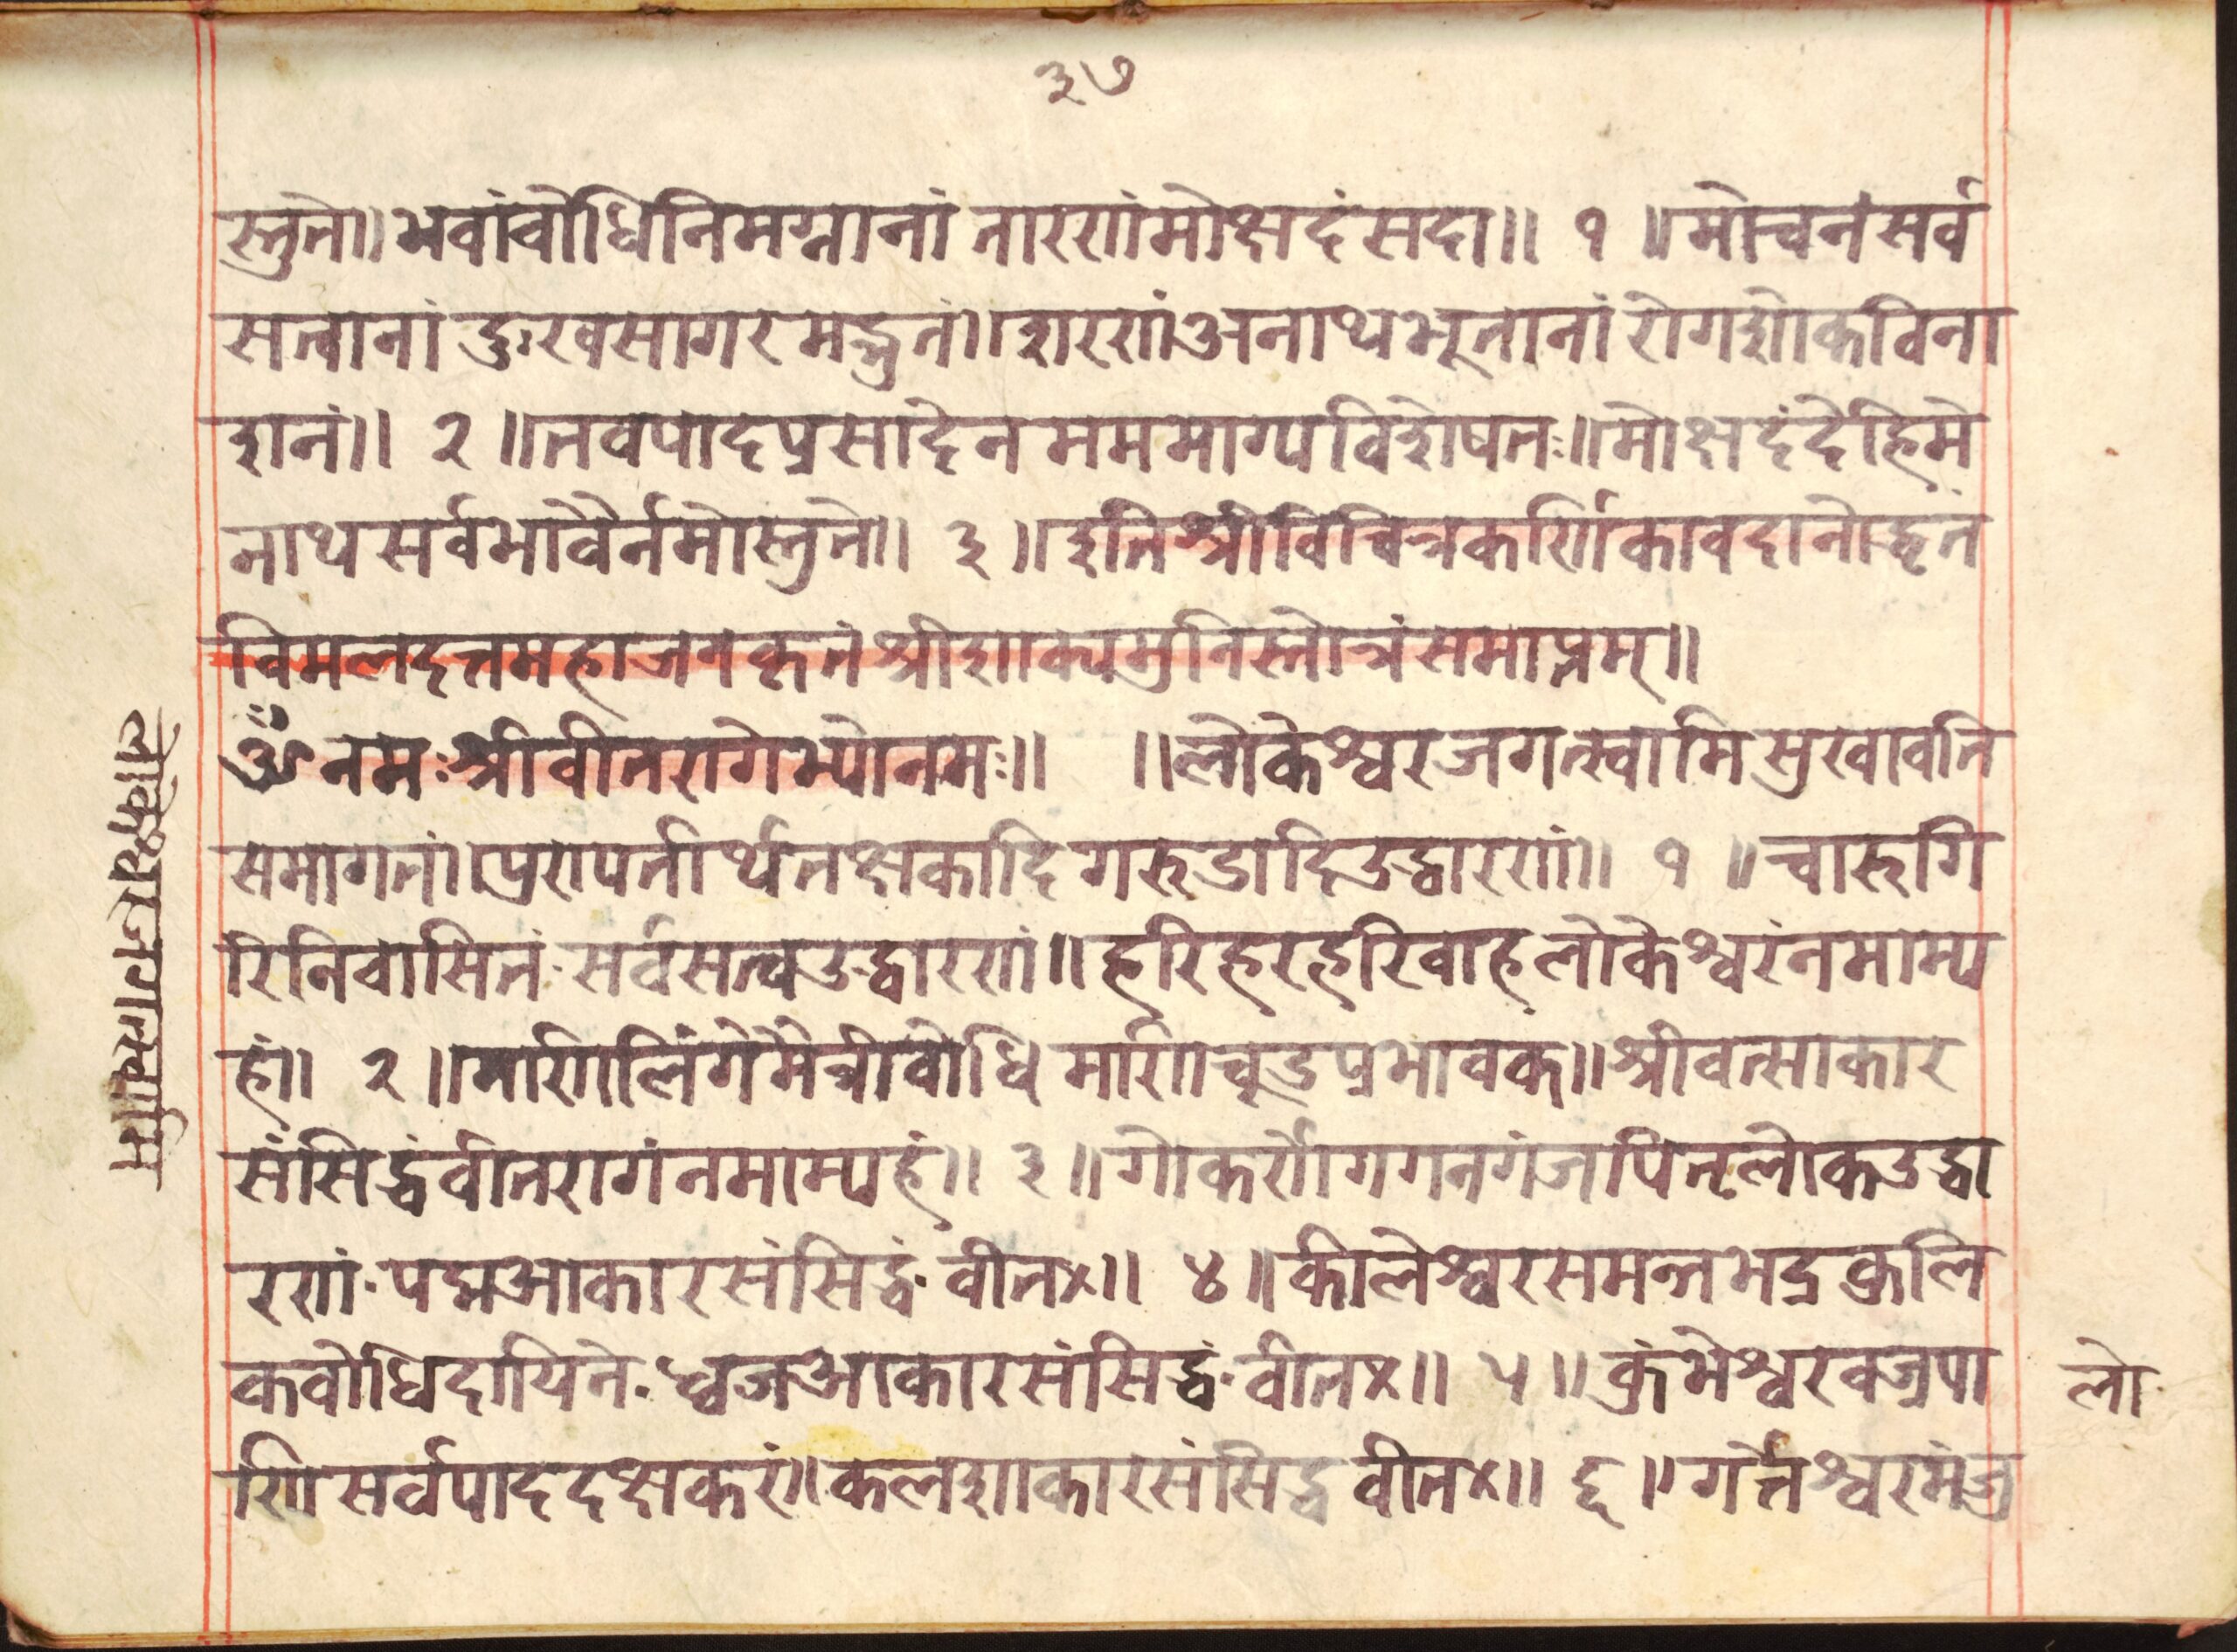 ३७
स्तुते॥ भवांवोधिनिमग्नानां तारणंमोक्षदंसदा॥ १ ॥ मोचनंसर्व
सत्वानां दुःखसागरेमद्भुतं॥ शरणंअनाथभूतानां रोगशोकविना
शनं॥ २ ॥ तवपादप्रसादेन ममभाग्यविशेषतः॥ मोक्षदंदेहिमे
नाथसर्वभावैर्नमोस्तुते॥ ३ ॥ इतिश्रीविचित्रकर्णिकावदानोद्धृतं
विमलदत्तमहाजनकृतंश्रीशाक्यमुनिस्तोत्रंसमाप्तम्॥
ॐ नमः श्रीवीतरागेभ्योनमः॥ ॥ लोकेश्वरजगत्स्वामिसुखावति
समागतं॥ प्ररापतीर्थतक्षकादिगरुडादिउद्धारणं॥ १ ॥ चारुगि
रिनिवासितं सर्वसत्वउद्धारणं॥ हरिहरहरिवाहलोकेश्वरंनमाम्य
हं॥ २ ॥ मणिलिंगेमैत्रीवोधि मणिचूडप्रभावक॥ श्रीवत्साकार
संसिद्धंवीतरागंनमाम्यहं॥ ३ ॥ गोकर्णेगगनगंजपितृलोकउद्धा
रणं पद्मआकारसंसिद्धं वीत×॥ ४ ॥ कीलेश्वरसमन्तभद्रकुलि
कवोधिदायिने ध्वजआकारसंसिद्धं वीत×॥ ५ ॥ कुंभेश्वरवज्रपा
णिसर्वपाददक्षकरं॥ कलशाकारसंसिद्धं वीत×॥ ६ ॥ गर्त्तेश्वरमंजु
लोकेश्वरजगत्स्वामि
लो